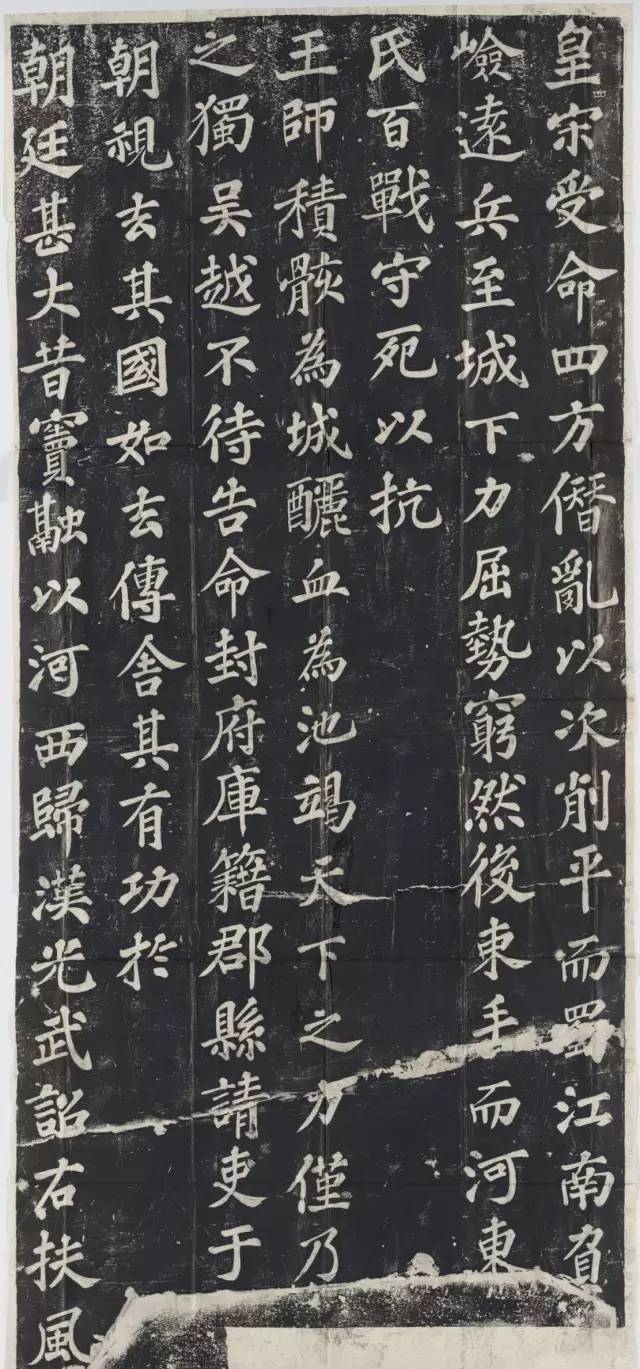 皇宋受命四方僭亂以次削平而蜀江南負
嶮遠兵至城下力屈勢窮然後束手而河東
氏百戰守死以抗
王師積骸為城釃血為池竭天下之力僅乃
之獨吳越不待告命封府庫籍郡縣請吏于
朝視去其國如去傳舍其有功於
朝廷甚大昔竇融以河西歸漢光武詔右扶風